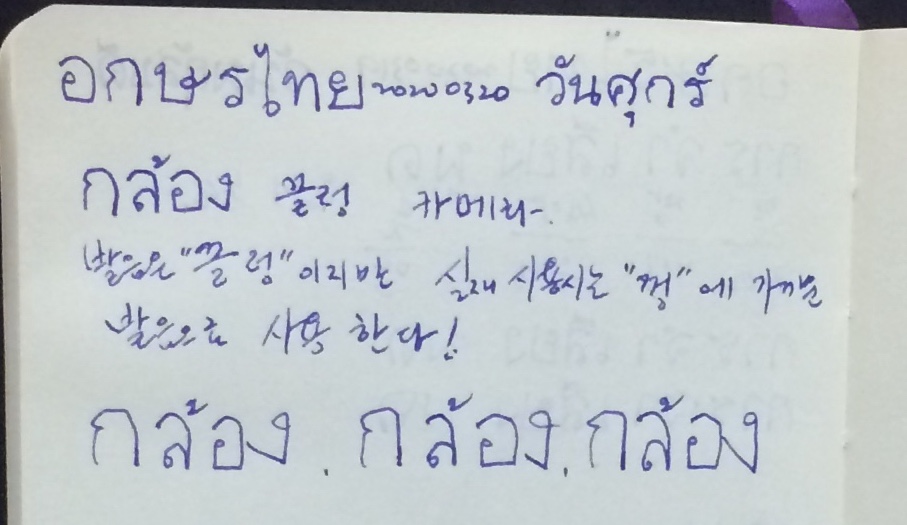 อกษรไทย 20200320 วันศุกร์
กล้อง 끌렁 카메라.
발음은 "끌렁" 이지만 실재 사용시는 "껑"에 가까운
발음으로 사용 한다!
กล้อง. กล้อง. กล้อง